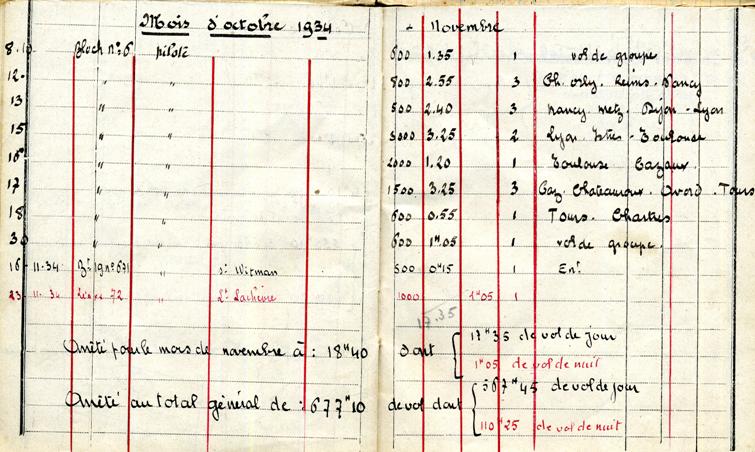 Mois d'octobre 1934 - Novembre
8.10 Bloch nº6 pilote 600 1.35 1 vol de groupe
12. " " 800 2.55 3 Ch. Orly. Reims. Nancy
13 " " 500 2.40 3 Nancy Metz. Dijon - Lyon
15 " " 3000 3.25 2 Lyon. Istres - Toulouse
16 " " 2000 1.20 1 Toulouse Cazaux
17 " " 1500 3.25 3 Caz. Chateauroux. Avord. Tours
18 " " 600 0.55 1 Tours. Chartres
30 " " 600 1H.05 1 vol de groupe.
16 - 11-34 nº 631 " St Wirman 500 0H15 1 Ent
23 - 11-34 72 " Lt Lachèvre 1000 1H05 1
17.35
Arrêté pour le mois de novembre à : 18H40 dont 17H35 de vol de jour
1H05 de vol de nuit
Arrêté au total général de : 677H10 de vol dont 567H45 de vol de jour
110H25 de vol de nuit